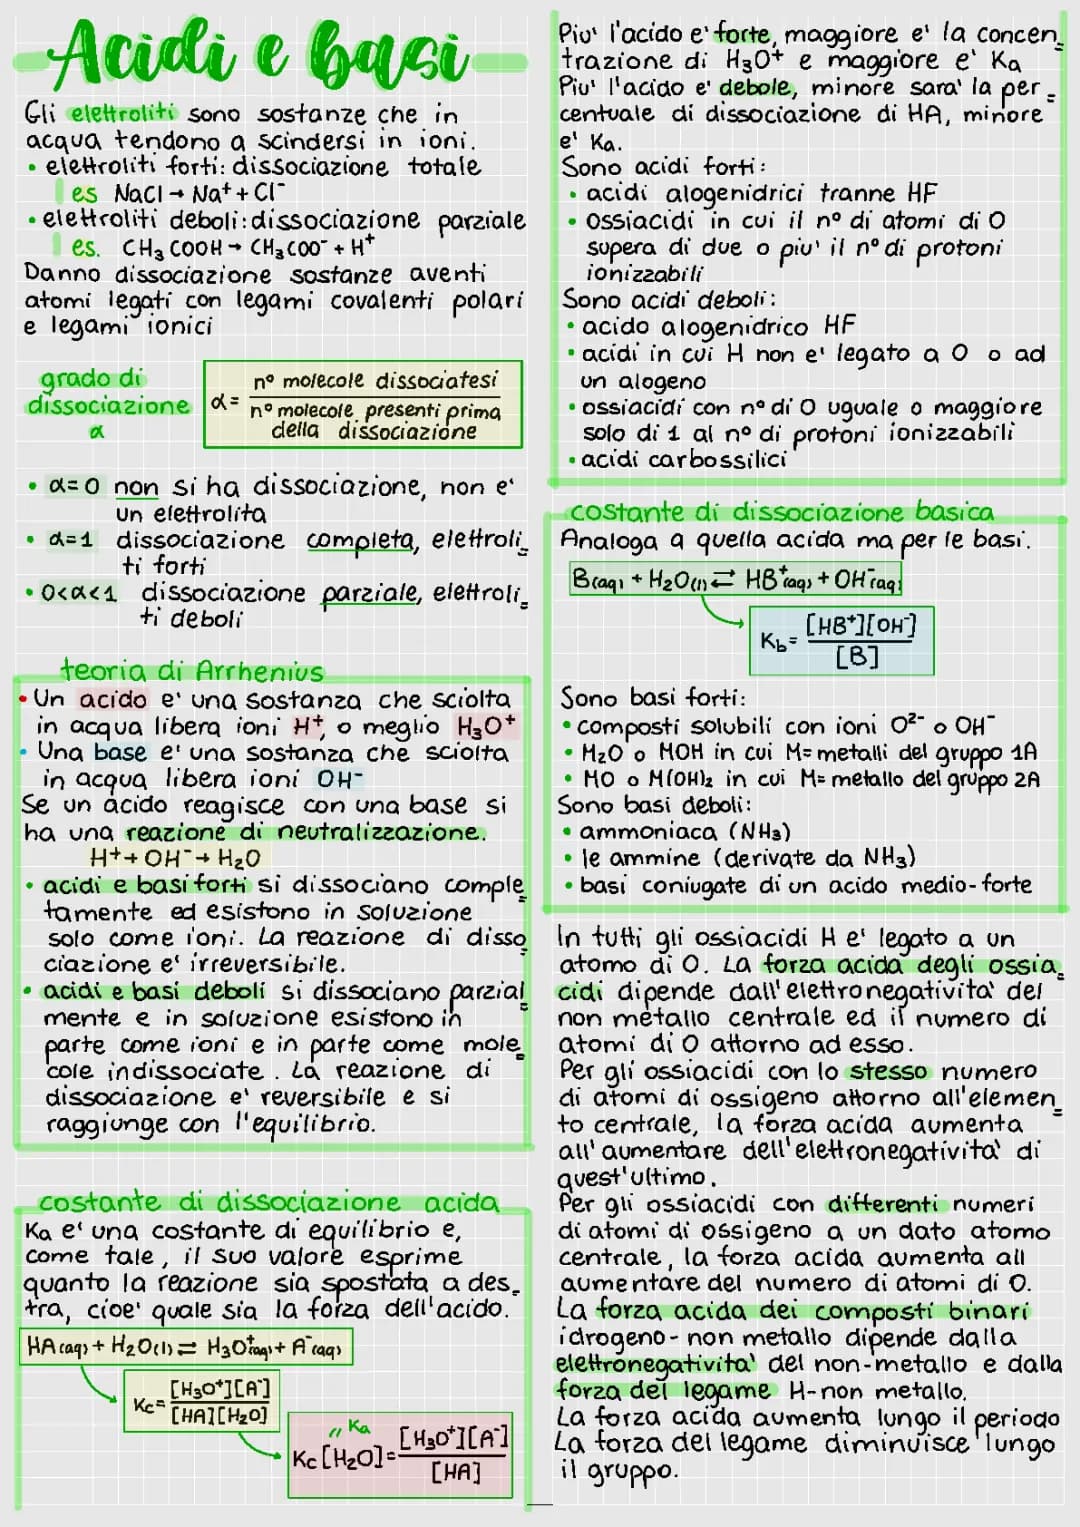 Acidi e basi
Gli elettroliti sono sostanze che in
acqua tendono a scindersi in ioni.
• elettroliti forti: dissociazione totale
es NaCl → Na⁺ + Cl⁻
• elettroliti deboli: dissociazione parziale
es. CH₃COOH → CH₃COO⁻ + H⁺
Danno dissociazione sostanze aventi
atomi legati con legami covalenti polari
e legami ionici
grado di
dissociazione
α
α = n° molecole dissociatesi
n° molecole presenti prima
della dissociazione
• α=0 non si ha dissociazione, non e'
un elettrolita
• α=1 dissociazione completa, elettroli_
ti forti
• 0<α<1 dissociazione parziale, elettroli_
ti deboli
teoria di Arrhenius
• Un acido e' una sostanza che sciolta
in acqua libera ioni H⁺, o meglio H₃O⁺
• Una base e' una sostanza che sciolta
in acqua libera ioni OH⁻
Se un acido reagisce con una base si
ha una reazione di neutralizzazione.
H⁺ + OH⁻ → H₂O
• acidi e basi forti si dissociano comple_
tamente ed esistono in soluzione
solo come ioni. La reazione di disso_
ciazione e' irreversibile.
• acidi e basi deboli si dissociano parzial_
mente e in soluzione esistono in
parte come ioni e in parte come mole_
cole indissociate. La reazione di
dissociazione e' reversibile e si
raggiunge con l'equilibrio.
costante di dissociazione acida
Ka e' una costante di equilibrio e,
come tale, il suo valore esprime
quanto la reazione sia spostata a des_
tra, cioe' quale sia la forza dell'acido.
HA(aq) + H₂O(l) ⇌ H₃O⁺(aq) + A⁻(aq)
Kc = [H₃O⁺][A⁻]
[HA][H₂O]
" Ka
Kc[H₂O] = [H₃O⁺][A⁻]
[HA]
Piu' l'acido e' forte, maggiore e' la concen_
trazione di H₃O⁺ e maggiore e' Ka
Piu' l'acido e' debole, minore sara' la per_
centuale di dissociazione di HA, minore
e' Ka.
Sono acidi forti:
• acidi alogenidrici tranne HF
• ossiacidi in cui il n° di atomi di O
supera di due o piu' il n° di protoni
ionizzabili
Sono acidi deboli:
• acido alogenidrico HF
• acidi in cui H non e' legato a O o ad
un alogeno
• ossiacidi con n° di O uguale o maggiore
solo di 1 al n° di protoni ionizzabili
• acidi carbossilici
costante di dissociazione basica
Analoga a quella acida ma per le basi.
B(aq) + H₂O(l) ⇌ HB⁺(aq) + OH⁻(aq)
Kb = [HB⁺][OH⁻]
[B]
Sono basi forti:
• composti solubili con ioni O²⁻ o OH⁻
• M₂O o MOH in cui M= metalli del gruppo 1A
• MO o M(OH)₂ in cui M= metallo del gruppo 2A
Sono basi deboli:
• ammoniaca (NH₃)
• le ammine (derivate da NH₃)
• basi coniugate di un acido medio-forte
In tutti gli ossiacidi H e' legato a un
atomo di O. La forza acida degli ossia_
cidi dipende dall'elettronegativita' del
non metallo centrale ed il numero di
atomi di O attorno ad esso.
Per gli ossiacidi con lo stesso numero
di atomi di ossigeno attorno all'elemen_
to centrale, la forza acida aumenta
all'aumentare dell'elettronegativita' di
quest'ultimo.
Per gli ossiacidi con differenti numeri
di atomi di ossigeno a un dato atomo
centrale, la forza acida aumenta all
aumentare del numero di atomi di O.
La forza acida dei composti binari
idrogeno-non metallo dipende dalla
elettronegativita' del non-metallo e dalla
forza del legame H-non metallo.
La forza acida aumenta lungo il periodo
La forza del legame diminuisce lungo
il gruppo.